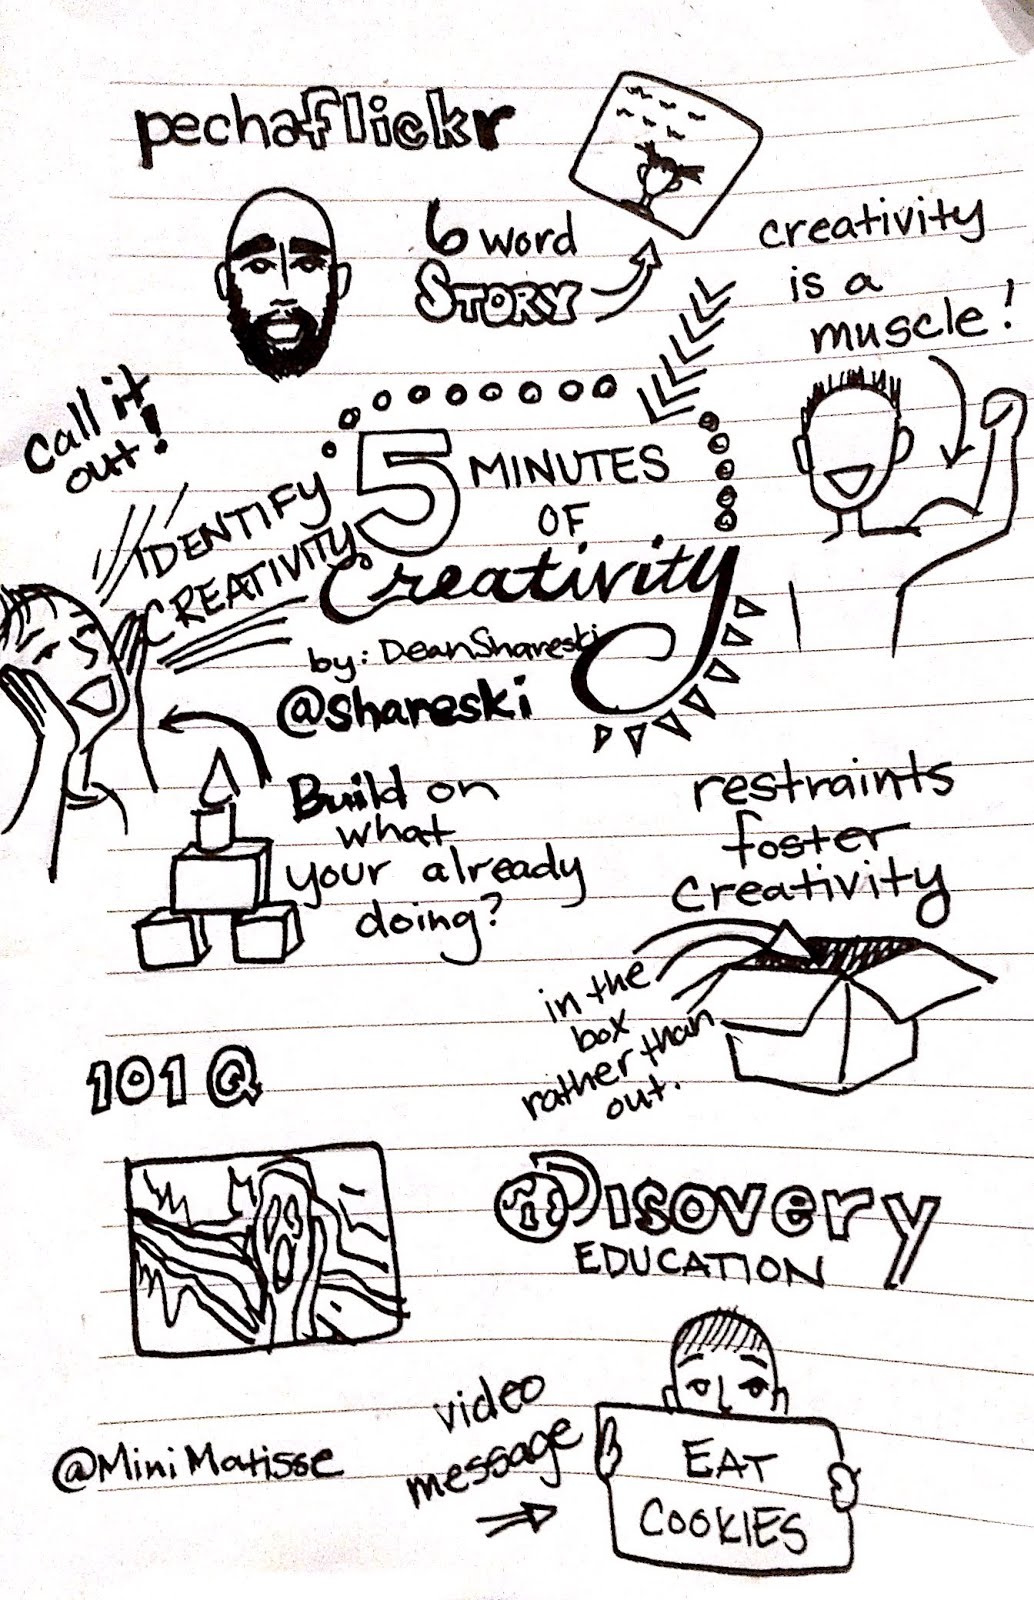 pechaflickr
6 word
STORY
creativity
is a
muscle!
call it
out!
IDENTIFY
CREATIVITY
5 MINUTES
OF
Creativity
by: Dean Shareski
@shareski
Build on
what
your already
doing?
restraints
foster
creativity
in the
box
rather than
out.
101 Q
Disovery
EDUCATION
video
message
EAT
COOKIES
@MiniMatisse